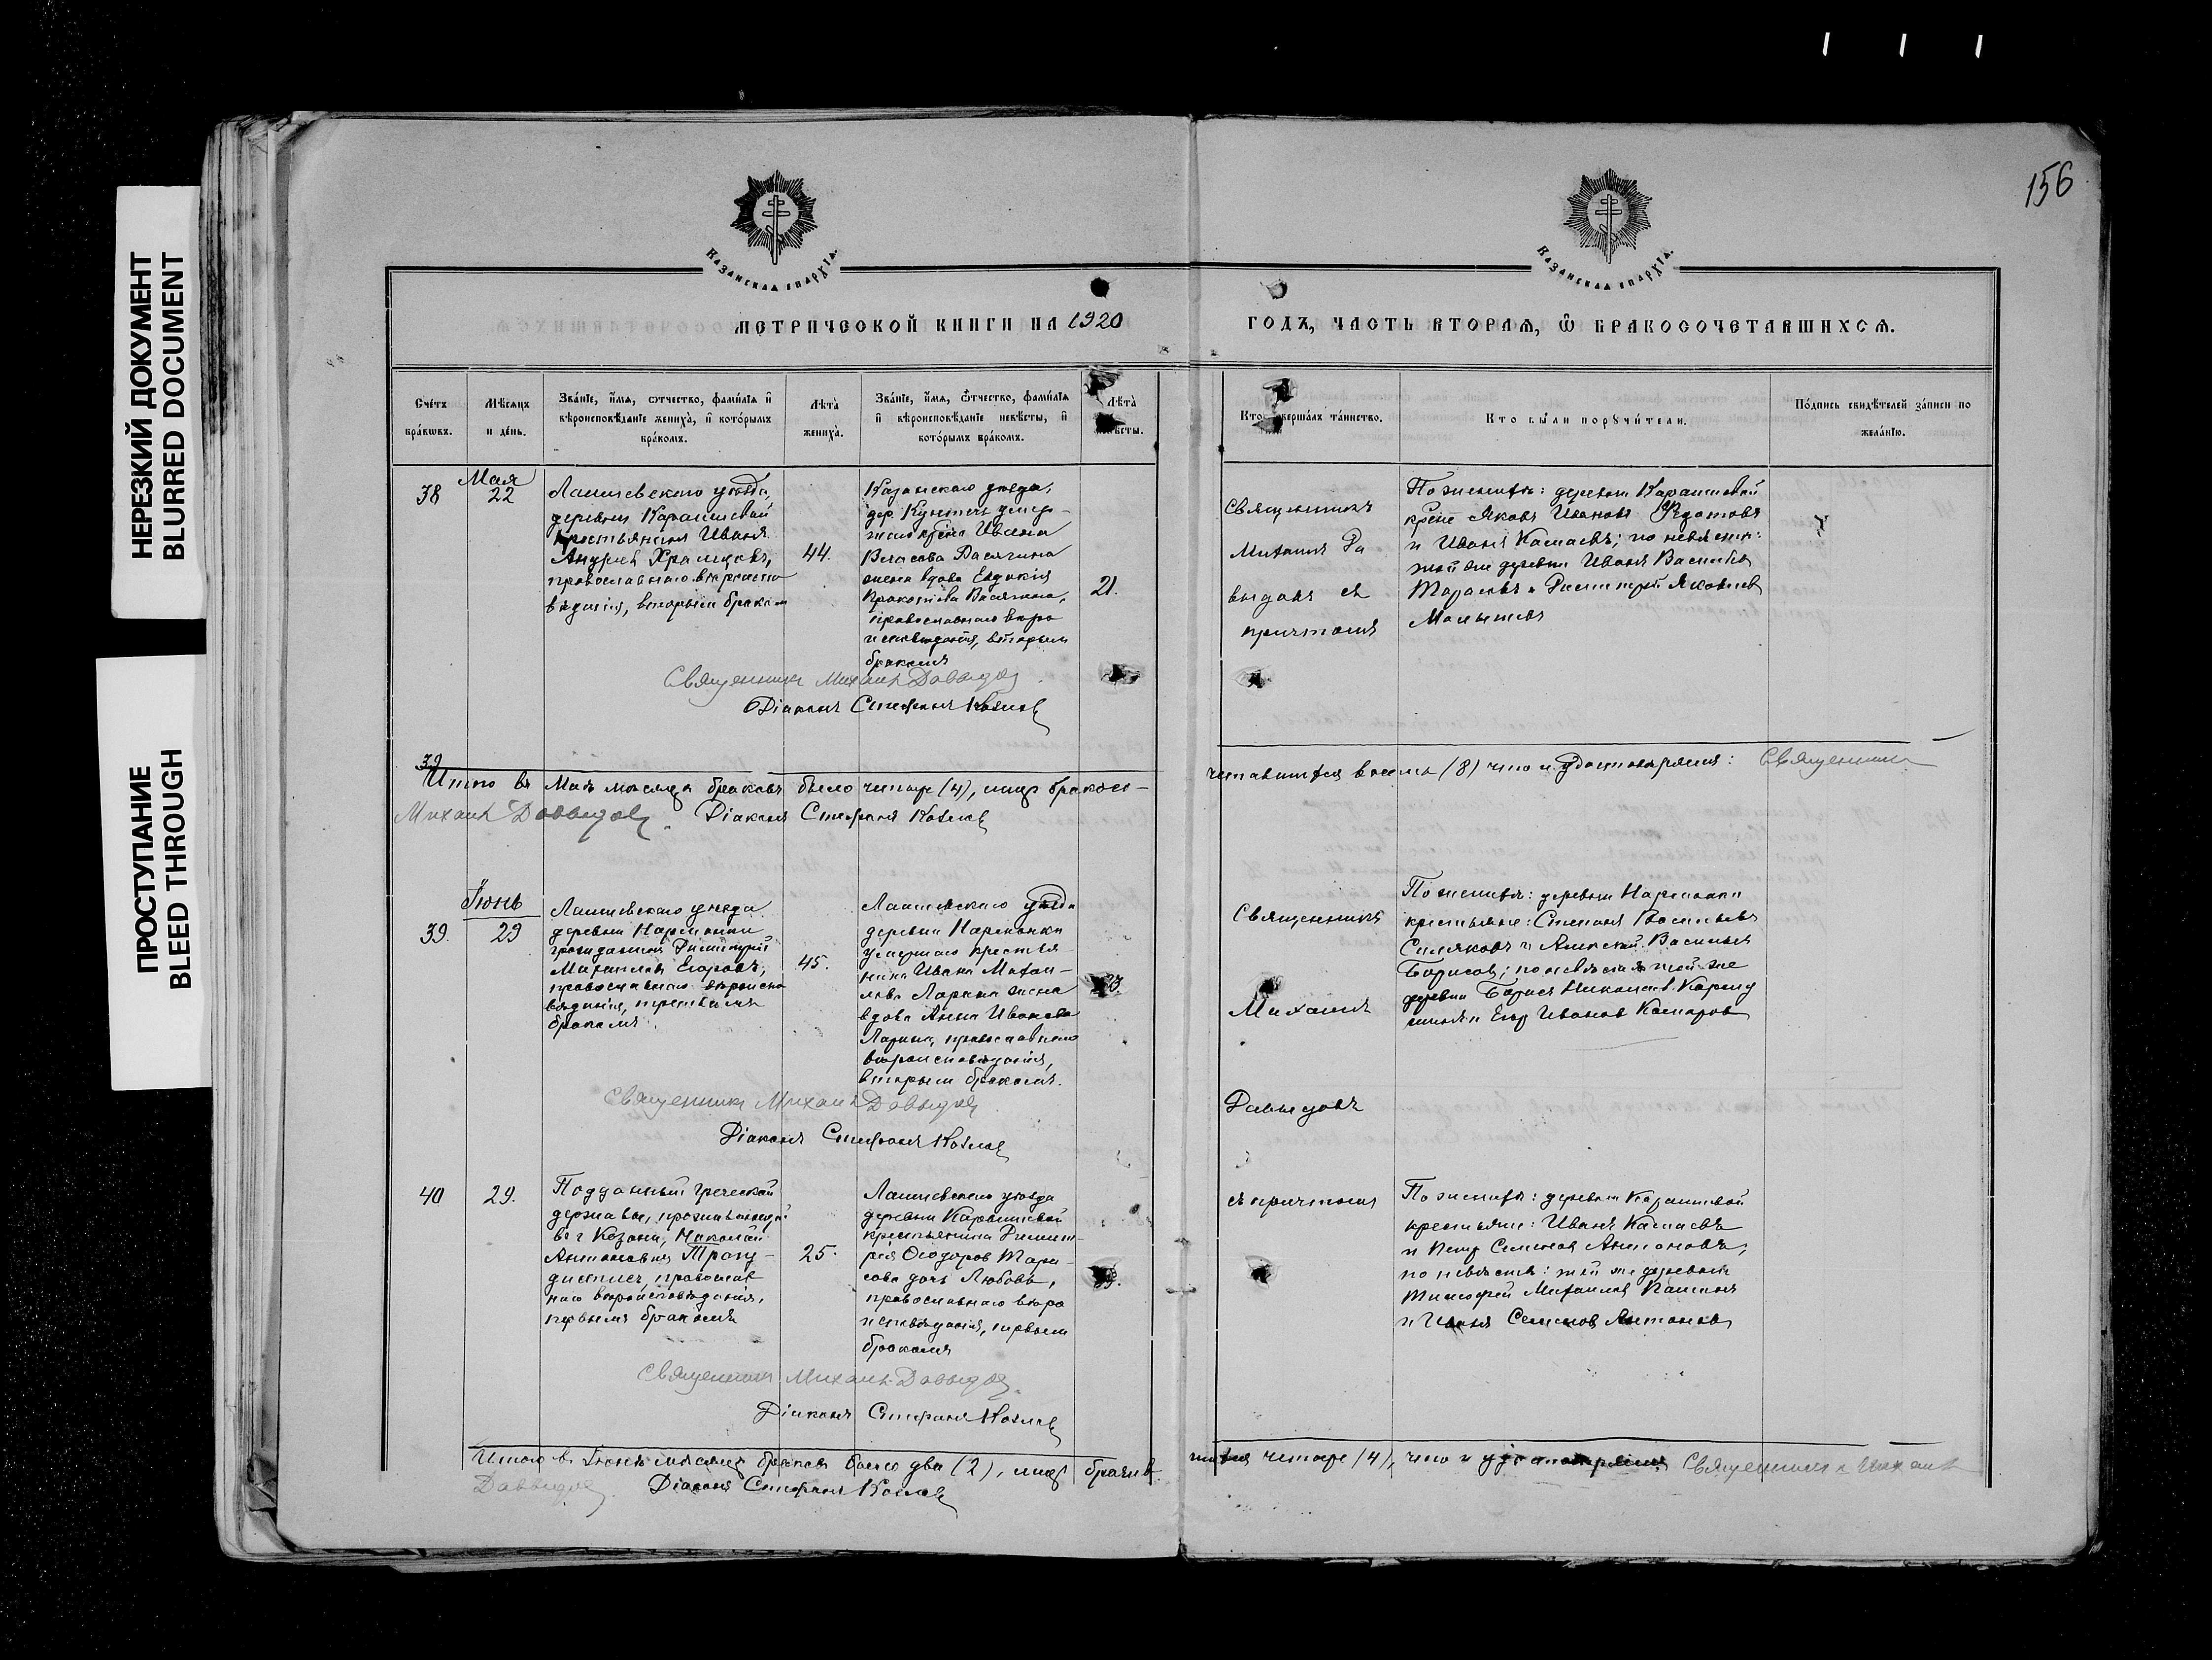 НЕРЕЗКИЙ ДОКУМЕНТ
BLURRED DOCUMENT
ПРОСТУПАНИЕ
BLEED THROUGH
156
Казанская епархїа.
Казанская епархїа.
МЕТРИЧЕСКОЙ КНИГИ НА 1920
ГОДЪ, ЧАСТЬ ВТОРАЯ, Ѿ БРАКОСОЧЕТАВШИХСЯ.
Счетъ
браковъ.
Мѣсяцъ
и день.
Званіе, имя, отчество, фамилія и
вѣроисповѣданіе жениха, и которымъ
бракомъ.
Лѣта
жениха.
Званіе, имя, отчество, фамилія
и вѣроисповѣданіе невѣсты, и
которымъ бракомъ.
Лѣта
Кто совершалъ таинство.
Кто были поручители.
Подпись свидѣтелей записи по
желанію.
38
Мая
22
Лаишевскаго уѣзда,
деревни Караишевой
крестьянинъ Иванъ
Андреевъ Храмцовъ,
православнаго вѣроиспо
вѣданія, вторымъ бракомъ
44.
Казанскаго уѣзда,
дер. умер-
шаго Ивана
Власова
жена вдова Евдокія
Прокопіева
православнаго вѣро
исповѣданія, вторымъ
бракомъ
21.
Священникъ
Михаилъ Да
выдовъ съ
причтомъ
По женихѣ: деревни Караишевой
Яковъ Ивановъ Ѳедотовъ
и Иванъ Камаевъ; по невѣстѣ:
той же деревни Иванъ Васильевъ
Тарасовъ и Димитрій Яковлевъ
Малышевъ
Священникъ Михаилъ Давыдовъ
Діаконъ Стефанъ Козловъ
39
Итого въ Маѣ мѣсяцѣ браковъ было четыре (4), лицъ бракосо-
четавшихся восемь (8) что и удостовѣряемъ: Священникъ
Михаилъ Давыдовъ. Діаконъ Стефанъ Козловъ
Іюнь
39. 29
Лаишевскаго уѣзда
деревни Нармонки
гражданинъ Димитрій
Михаиловъ Егоровъ,
православнаго вѣроиспо
вѣданія, третьимъ
бракомъ
45.
Лаишевскаго уѣзда
деревни Нармонки
умершаго крестья
нина Ивана Михаи-
лова Ларина жена
вдова Анна Иванова
Ларина, православнаго
вѣроисповѣданія,
вторымъ бракомъ.
Священникъ
Михаилъ
Давыдовъ
По женихѣ: деревни Нармонки
крестьяне: Степанъ Васильевъ
и Алексѣй Васильевъ
Борисовъ; по невѣстѣ той же
деревни Борисъ Николаевъ
и Егоръ Ивановъ Комаровъ
Священникъ Михаилъ Давыдовъ
Діаконъ Стефанъ Козловъ
40 29.
Подданный греческой
державы, проживающій
въ г. Казани, Николай
Антоновичъ
православ
наго вѣроисповѣданія,
первымъ бракомъ
25.
Лаишевскаго уѣзда
деревни Караишевой
крестьянина Димит-
рія Ѳеодоров Тара-
сова дочь Любовь,
православнаго вѣро
исповѣданія, первымъ
бракомъ
съ причтомъ
По женихѣ: деревни Караишевой
крестьяне: Иванъ Камаевъ
и Петръ Семеновъ Антоновъ,
по невѣстѣ: той же деревни
Тимофей Михаиловъ
и Иванъ Семеновъ Антоновъ
Священникъ Михаилъ Давыдовъ.
Діаконъ Стефанъ Козловъ
Итого въ Іюнѣ мѣсяцѣ браковъ было два (2), лицъ брачив
шихся четыре (4), что и удостовѣряемъ Священникъ Михаилъ
Давыдовъ. Діаконъ Стефанъ Козловъ